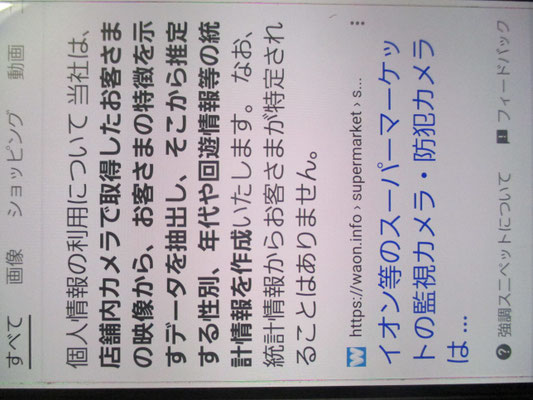 すべて 画像 ショッピング 動画
個人情報の利用について 当社は、
店舗内カメラで取得したお客さま
の映像から、お客さまの特徴を示
すデータを抽出し、そこから推定
する性別、年代や回遊情報等の統
計情報を作成いたします。なお、
統計情報からお客さまが特定され
ることはありません。
W https://waon.info › supermarket › s...
イオン等のスーパーマーケッ
トの監視カメラ・防犯カメラ
は ...
強調スニペットについて フィードバック